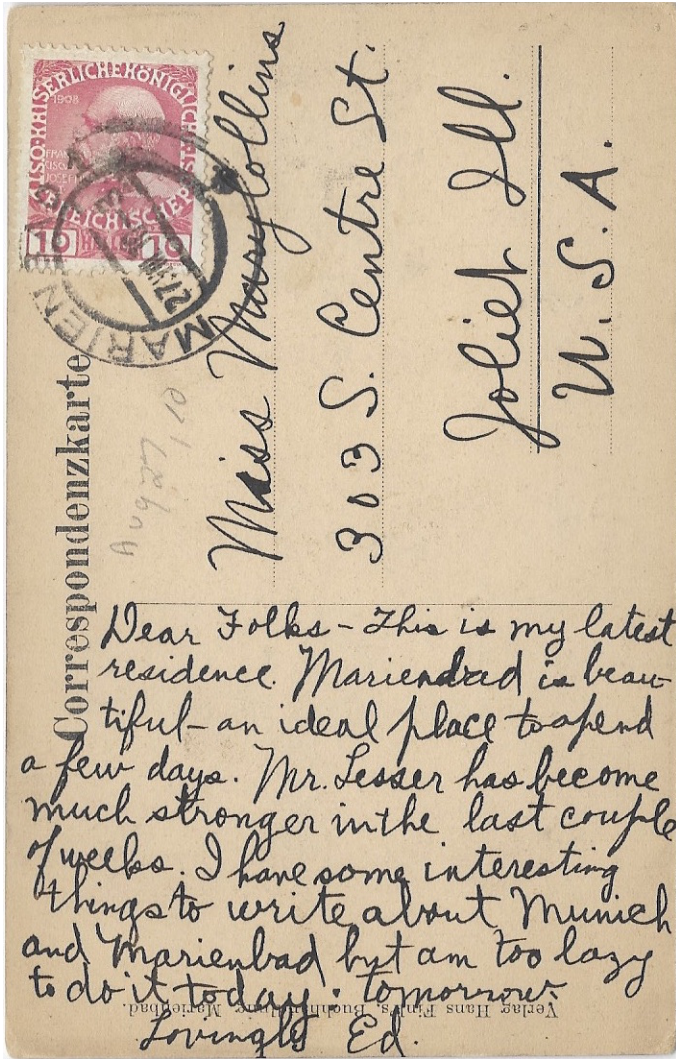 KAISERLICHE KÖNIGLICHE
ÖSTERREICHISCHE POST
1908
10 HELLER 10
MARIENB
27.VIII
Correspondenzkarte
Miss Mary Collins
303 S. Centre St.
Joliet Ill.
U. S. A.
Dear Folks - This is my latest
residence. Marienbad is beau-
tiful - an ideal place to spend
a few days. Mr. Lesser has become
much stronger in the last couple
of weeks. I have some interesting
things to write about Munich
and Marienbad but am too lazy
to do it today: tomorrow.
Lovingly Ed.
Verlag Hans Fink's Buchhandlung, Marienbad.